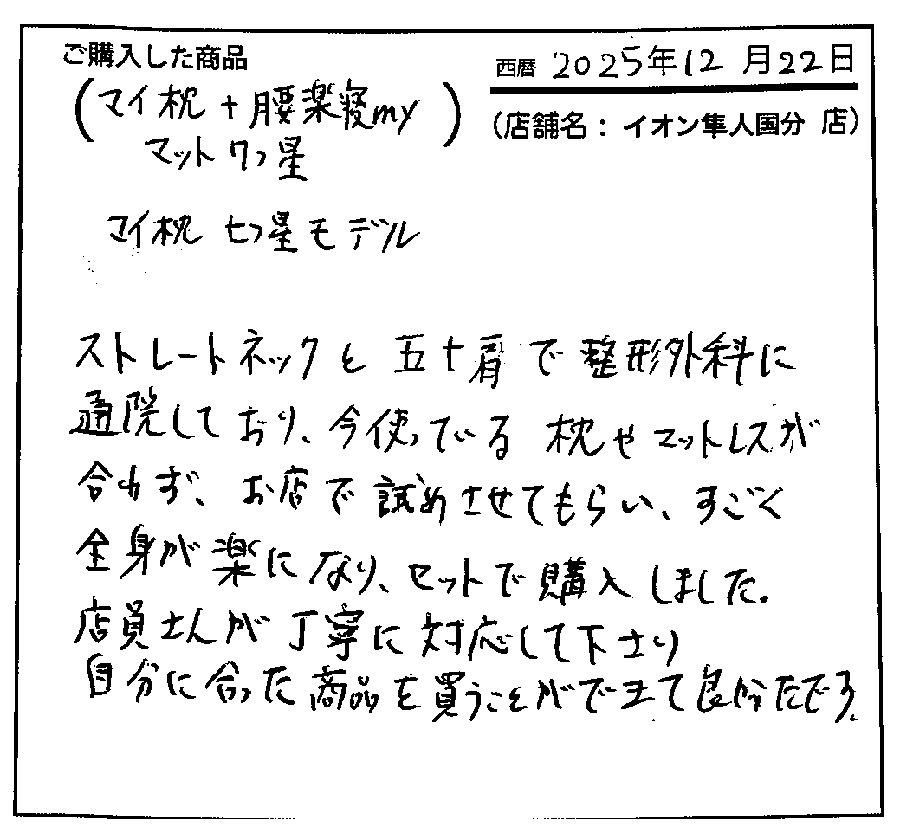 ご購入した商品
西暦 2025年12月22日
(マイ枕+腰楽寝my
マット七つ星)
(店舗名:イオン隼人国分 店)
マイ枕 七つ星モデル
ストレートネックと五十肩で整形外科に
通院しており、今使っている枕やマットレスが
合わず、お店で試めさせてもらい、すごく
全身が楽になり、セットで購入しました。
店員さんが丁寧に対応して下さり
自分に合った商品を買うことができて良かったです。